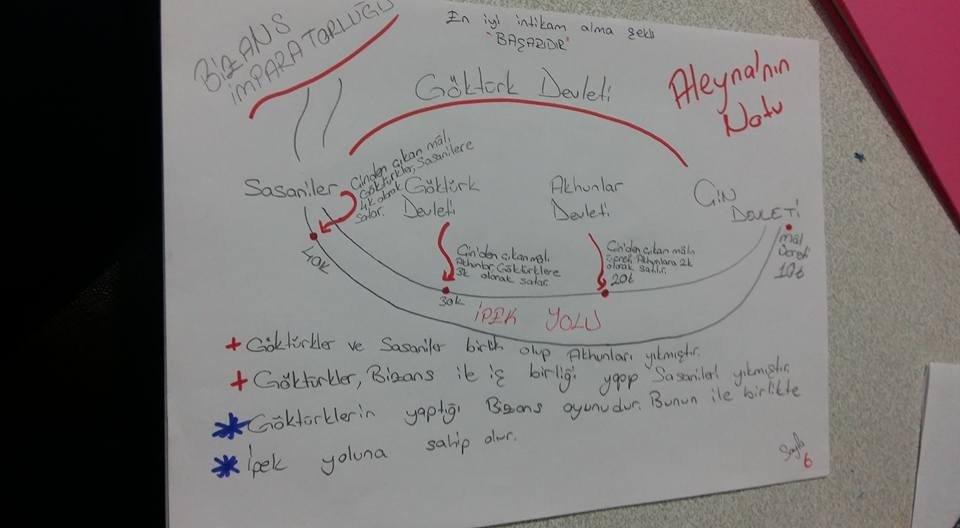 BİZANS
İMPARATORLUĞU
En iyi intikam alma şekli
"BAŞARIDIR"
Göktürk Devleti
Aleyna'nın
Notu
Sasaniler
Çinden çıkan malı,
Göktürkler, Sasanilere
4k olarak
satar.
40k
Göktürk
Devleti
Çin'den çıkan malı,
Akhunlar Göktürklere
3k olarak satar.
30k
Akhunlar
Devleti
Çin'den çıkan malı
Akhunlara 2k
olarak satılır.
20₺
ÇİN
DEVLETİ
mal
ücreti
10₺
İPEK YOLU
+ Göktürkler ve Sasaniler birlik olup Akhunları yıkmıştır.
+ Göktürkler, Bizans ile iş birliği yapıp Sasanileri yıkmıştır.
* Göktürklerin yaptığı Bizans oyunudur. Bunun ile birlikte
* İpek yoluna sahip olur.
Sayfa
6